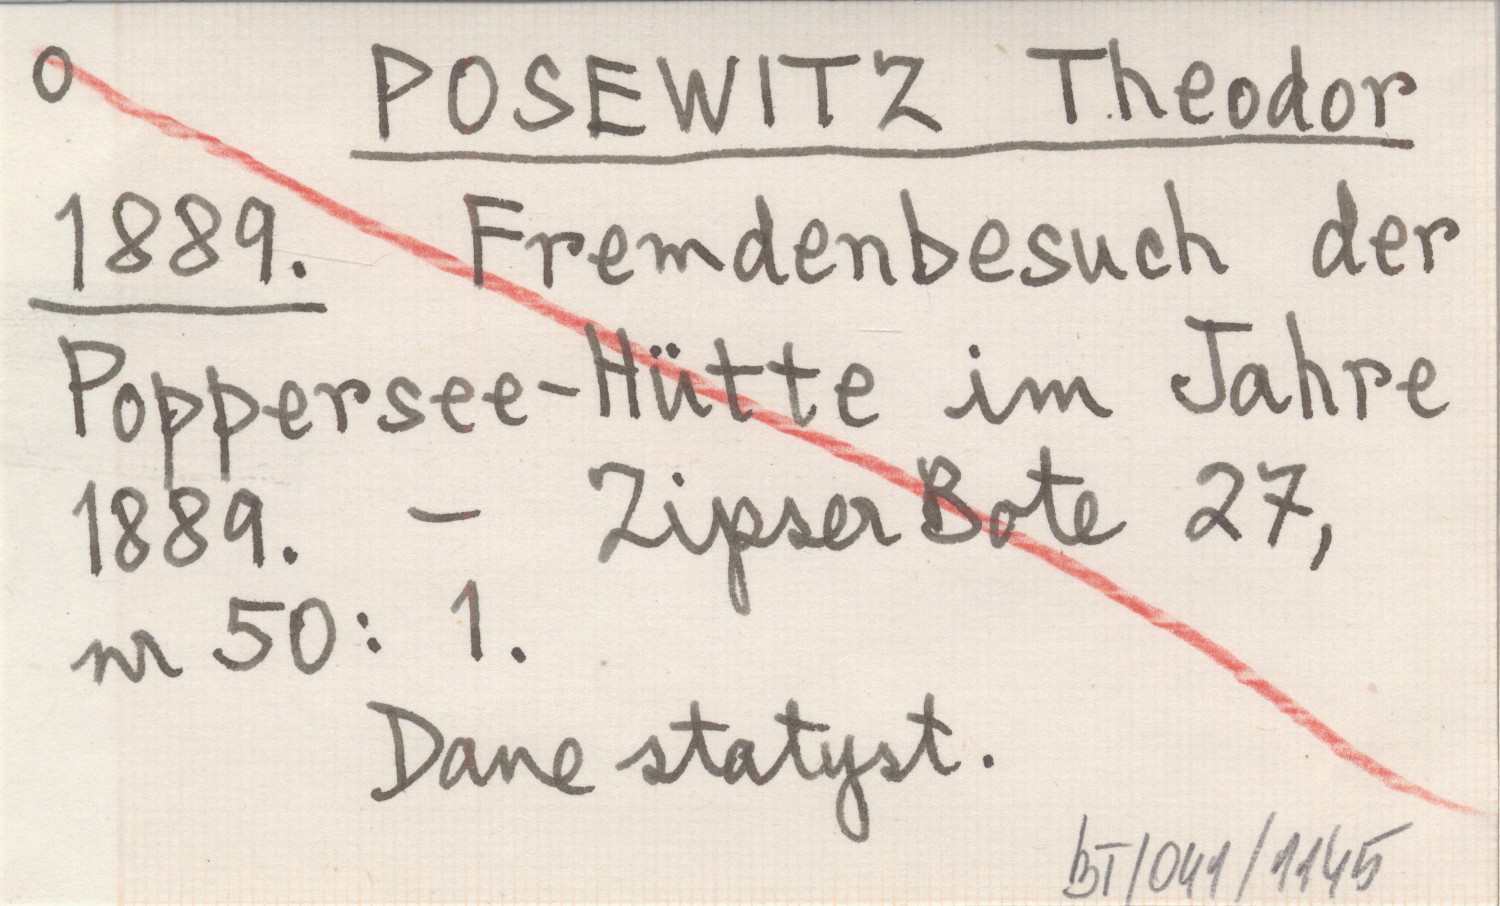 O POSEWITZ Theodor
1889. Fremdenbesuch der
Poppersee-Hütte im Jahre
1889. – Zipser Bote 27,
nr 50: 1.
Dane statyst.
BT/041/1145